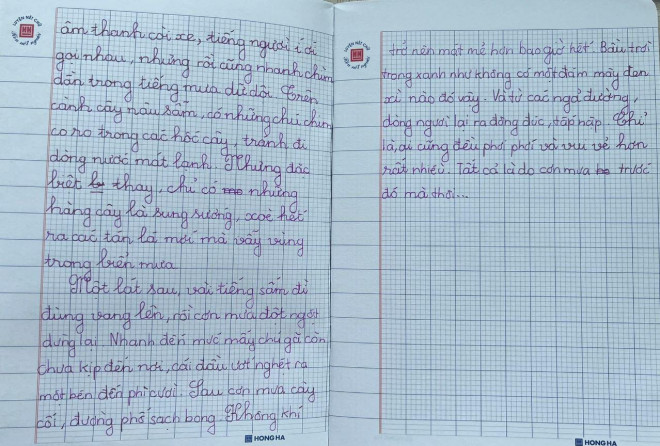 âm thanh còi xe, tiếng người í ới
gọi nhau, nhưng rồi cũng nhanh chìm
dần trong tiếng mưa dữ dội. Trên
cành cây nâu sẫm, có những chú chim
co ro trong các hốc cây, tránh đi
dòng nước mát lạnh. Nhưng đặc
biệt thay, chỉ có những
hàng cây là sung sướng, xoè hết
ra các tán lá mới mà vẫy vùng
trong biển mưa.
Một lát sau, vài tiếng sấm đì
đùng vang lên, rồi cơn mưa đột ngột
dừng lại. Nhanh đến mức mấy chú gà còn
chưa kịp đến nơi, cái đầu ướt nghẹt ra
một bên đến phì cười. Sau cơn mưa cây
cối, đường phố sạch bong. Không khí
HONG HA
trở nên mát mẻ hơn bao giờ hết. Bầu trời
trong xanh như không có một đám mây đen
xì nào đó vậy. Và từ các ngả đường,
dòng người lại ra đông đúc, tấp nập. Chỉ
là, ai cũng đều phơi phới và vui vẻ hơn
rất nhiều. Tất cả là do cơn mưa trước
đó mà thôi...
HONG HA